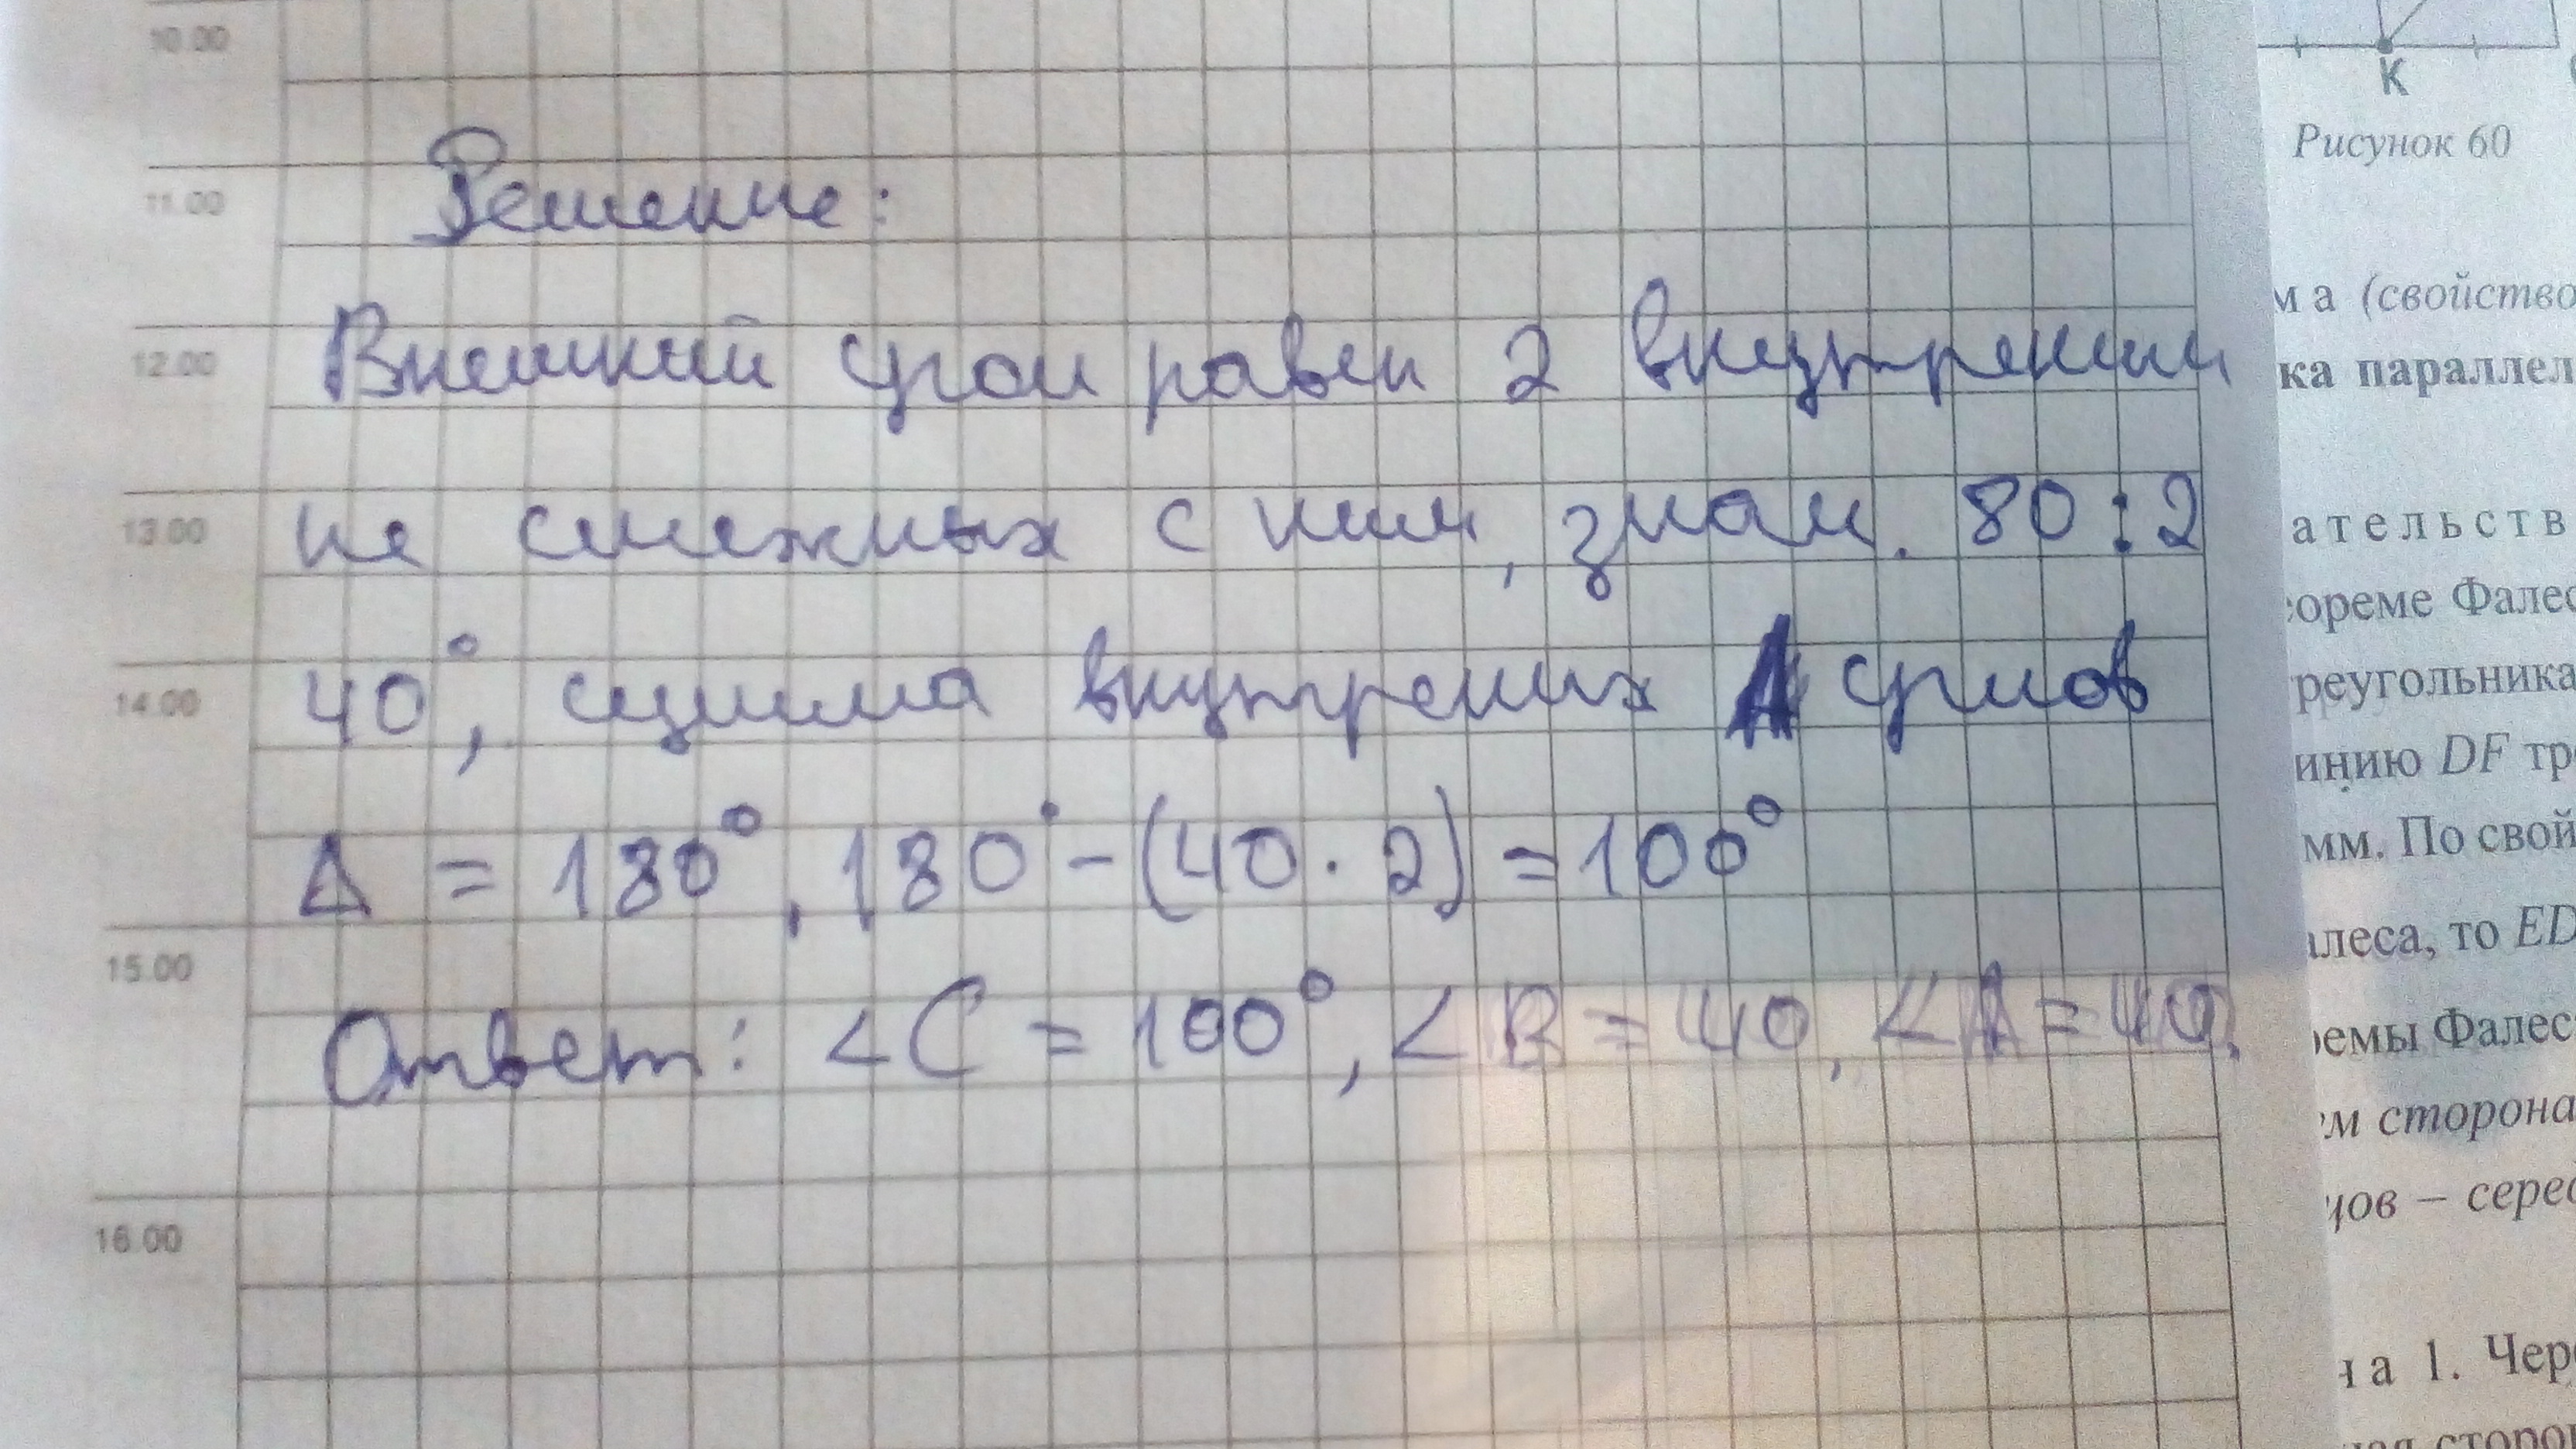 10.00
11.00
12.00
13.00
14.00
15.00
16.00
Решение:
Внешний угол равен 2 внутреним
не смежных с ним, знач. 80:2
40°, сумма внутрених углов
Δ = 180°, 180° - (40 · 2) = 100°
Ответ: ∠C = 100°, ∠B = 40, ∠A = 40.
K
Рисунок 60
ма (свойство
ка параллел
ательств
еореме Фалес
реугольника
инию DF тр
мм. По свой
леса, то ED
ремы Фалес
м сторона
цов – серед
на 1. Чер